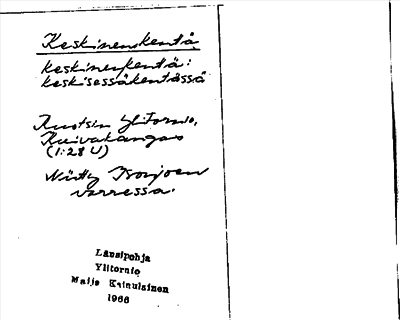 Keskinenkenttä
keskinenkenttä:
keskisessäkentässä
Ruotsin Ylitornio,
Kuivakangas
(1:28 U)
Niitty Isonjoen
varressa.
Länsipohja
Ylitornio
Maija Kainulainen
1966